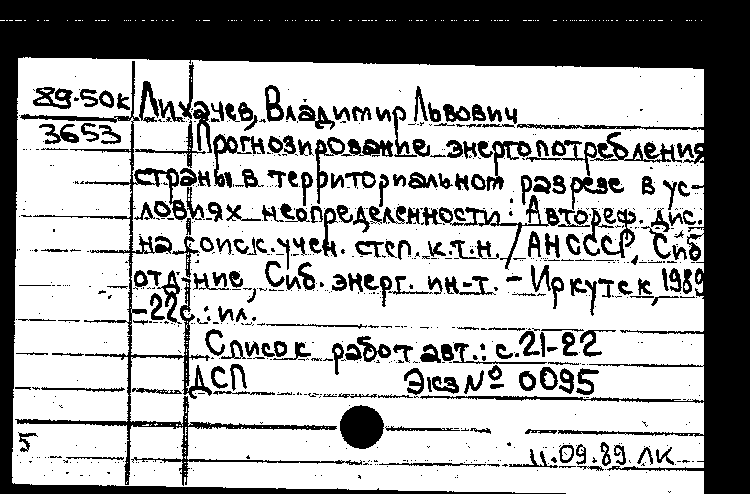 89-50к Лихачев, Владимир Львович
3653 Прогнозирование энергопотребления
страны в территориальном разрезе в ус-
ловиях неопределенности: Автореф. дис.
на соиск. учен. степ. к.т.н. / АН СССР, Сиб
отд-ние, Сиб. энерг. ин-т. - Иркутск, 1989
-22с.: ил.
Список работ авт.: с.21-22
ДСП Экз № 0095
5
11.09.89 ЛК